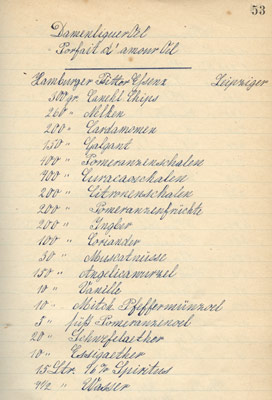 53
Damenliqueur Oel
Parfait d'amour Oel
Hamburger Bitter Essenz Leipziger
500 gr. Canehl Chips
260 " Nelken
200 " Cardamomen
150 " Galgant
400 " Pomeranzenschalen
400 " Curacaoschalen
200 " Citronenschalen
200 " Pomeranzenfrüchte
200 " Ingber
100 " Coriander
50 " Muscatnüsse
150 " Angelicawurzel
10 " Vanille
10 " Mitch. Pfeffermünzoel
5 " süß Pomeranzenoel
20 " Schwefelaether
10 " Essigaether
15 Ltr. 96% Spiritus
4 1/2 " Wasser